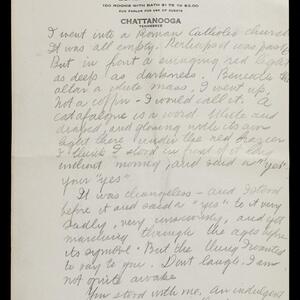 100 ROOMS WITH BATH $1.75 TO $3.50
SUN PARLOR FOR USE OF GUESTS
CHATTANOOGA
TENNESSEE
I went into a Roman Catholic church
It was all empty.
But in front a swinging red light
as deep as darkness. Beneath the
altar a white mass, I went up,
Not a coffin - I would call it. A
catafalque is a word. White and
draped, and glowing with its own
light there under the red
I think I stood in front of it
without moving and said a "yes"
your "yes"
It was changeless - and I stood
before it and said a "yes" to it very
sadly, very and yet
marching through the ages before
its symbol. But the thing I wanted
to say to you. Don't laugh. I am
not quite awake
You stood with me. An indulgent